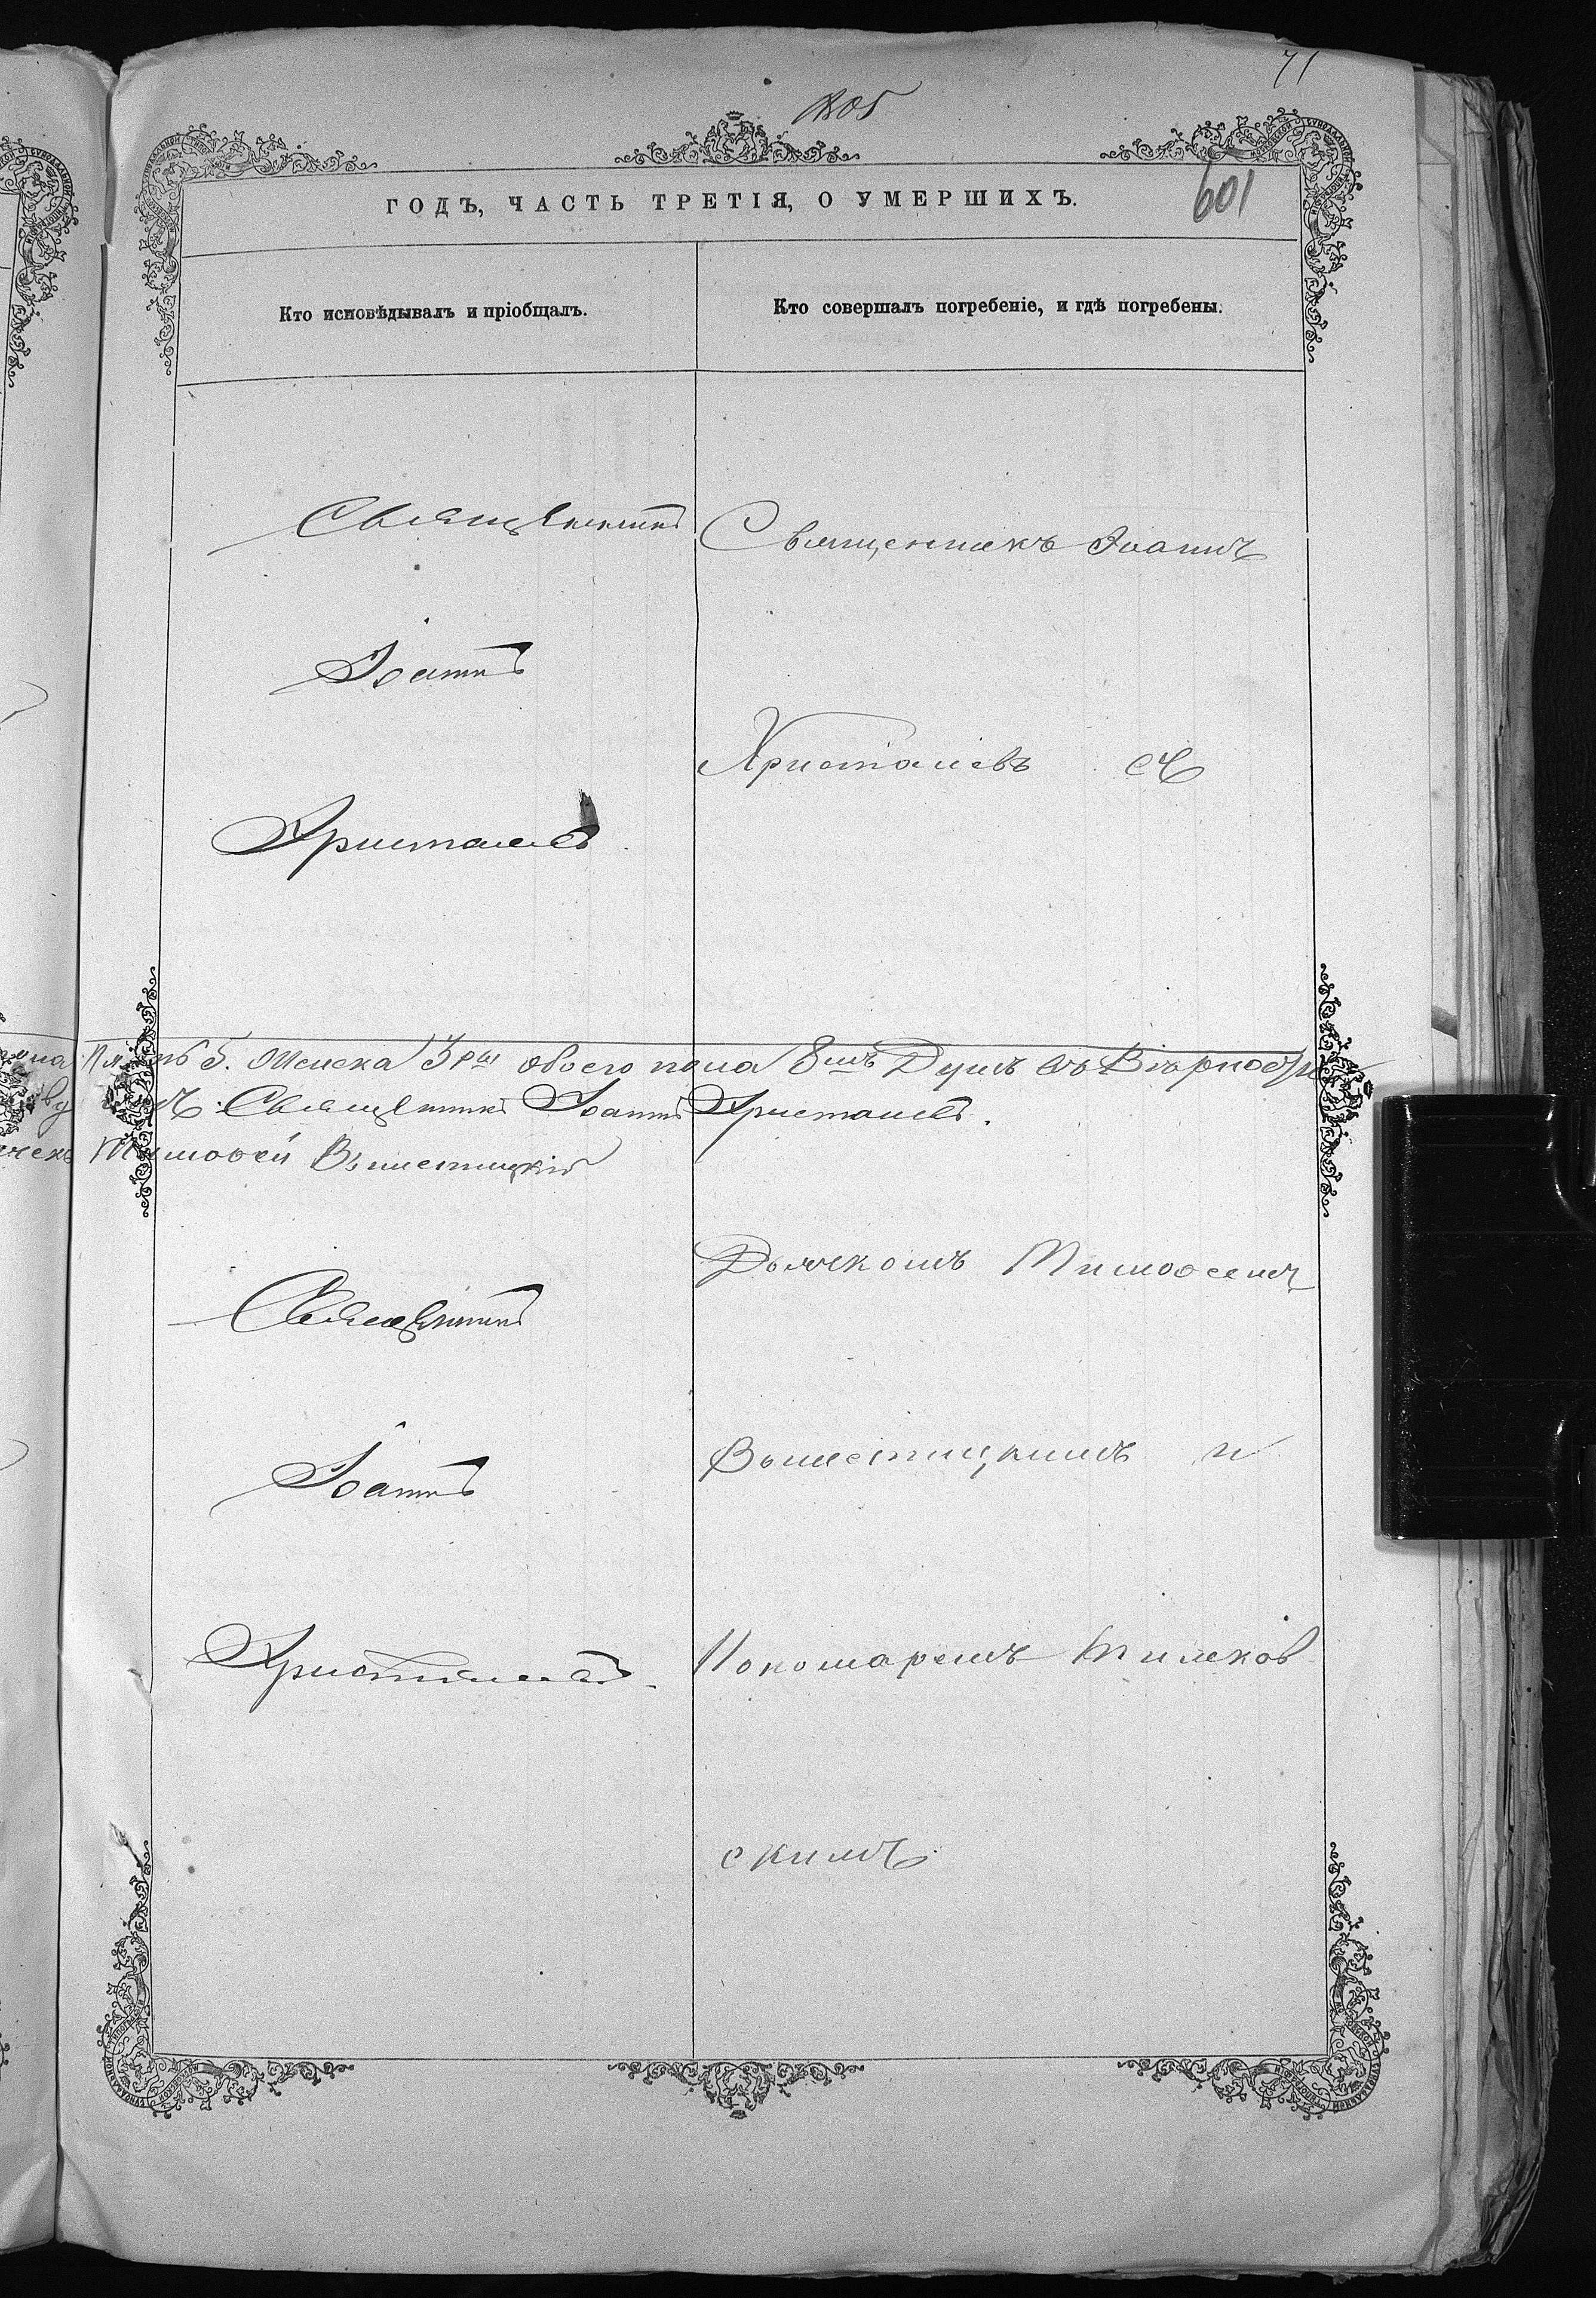 71
601
ГОДЪ, ЧАСТЬ ТРЕТІЯ, О УМЕРШИХЪ.
Кто исповѣдывалъ и пріобщалъ.
Кто совершалъ погребеніе, и гдѣ погребены.
Священникъ
Іоаннъ
Христалевъ
Священникъ Іоаннъ
Христалевъ съ
Пять 5. Женска 3ри обоего пола 8мь Душъ
Священникъ Іоаннъ Христалевъ.
Тимофей
Священникъ
Іоаннъ
Христалевъ.
Дьячкомъ Тимофеемъ
и
Пономаремъ
скимъ